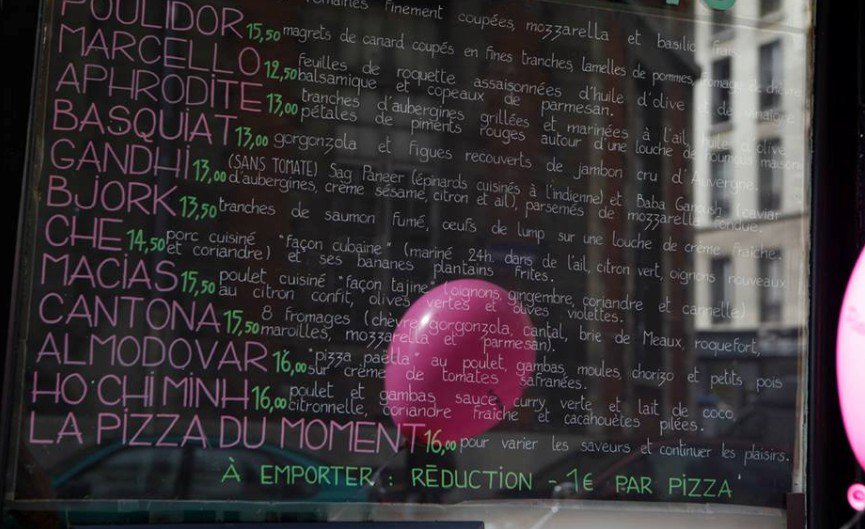 finement coupées, mozzarella et basilic frais.
POULIDOR 15,50 magrets de canard coupés en fines tranches, lamelles de pommes, fromage de chèvre
MARCELLO 12,50 feuilles de roquette assaisonnées d'huile d'olive et de vinaigre
balsamique et copeaux de parmesan.
APHRODITE 13,00 tranches d'aubergines grillées et marinées à l'ail, huile d'olive
pétales de piments rouges autour d'une louche de houmous maison
BASQUIAT 13,00 gorgonzola et figues recouverts de jambon cru d'Auvergne.
GANDHI 13,00 (SANS TOMATE) Sag Paneer (épinards cuisinés à l'indienne), et Baba Ganoush (caviar
d'aubergines, crème sésame, citron et ail), parsemés de mozzarella fondue.
BJORK 13,50 tranches de saumon fumé, oeufs de lump sur une louche de crème fraîche.
CHE 14,50 porc cuisiné "façon cubaine" (mariné 24h. dans de l'ail, citron vert, oignons nouveaux
et coriandre) et ses bananes plantains frites.
MACIAS 15,50 poulet cuisiné "façon tajine" (oignons, gingembre, coriandre et cannelle)
au citron confit, olives vertes et olives violettes.
CANTONA 15,50 8 fromages (chèvre, gorgonzola, cantal, brie de Meaux, roquefort,
maroilles, mozzarella et parmesan).
ALMODOVAR 16,00 "pizza paëlla" au poulet, gambas, moules, chorizo et petits pois
sur crème de tomates safranées.
HO CHI MINH 16,00 poulet et gambas sauce curry verte et lait de coco
citronnelle, coriandre fraîche et cacahouètes pilées.
LA PIZZA DU MOMENT 16,00 pour varier les saveurs et continuer les plaisirs.
À EMPORTER : RÉDUCTION - 1€ PAR PIZZA